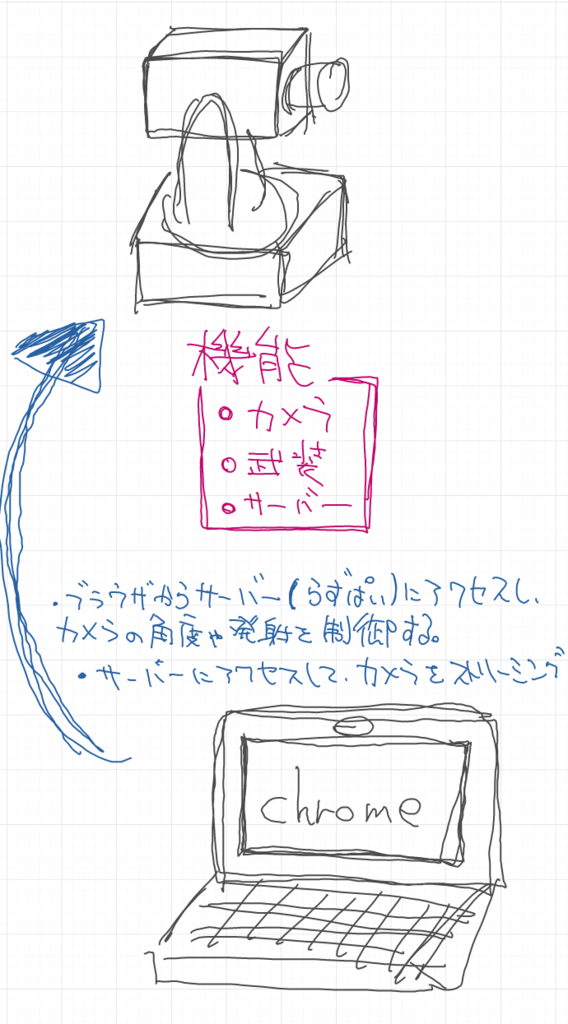 機能
• カメラ
• 武装
• サーバー
・ブラウザからサーバー(らずぱい)にアクセスし、
カメラの角度や発射を制御する。
・サーバーにアクセスして、カメラをストリーミング
chrome